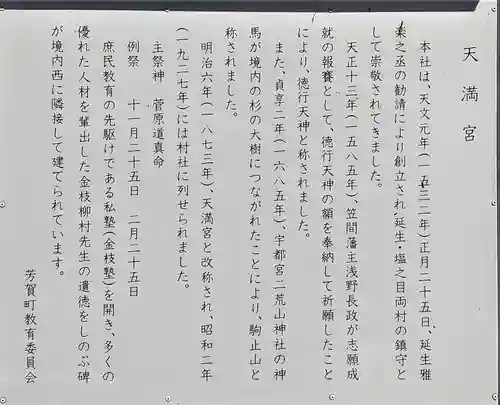 天満宮
本社は、天文元年(一五三二年)正月二十五日、延生雅
楽之丞の勧請により創立され、延生・塩之目両村の鎮守と
して崇敬されてきました。
天正十三年(一五八五年)、笠間藩主浅野長政が志願成
就の報賽として、徳行天神の額を奉納して祈願したこと
により、徳行天神と称されました。
また、貞享二年(一六八五年)、宇都宮二荒山神社の神
馬が境内の杉の大樹につながれたことにより、駒止山と
称されました。
明治六年(一八七三年)、天満宮と改称され、昭和二年
(一九二七年)には村社に列せられました。
主祭神 菅原道真命
例祭 十一月二十五日 二月二十五日
庶民教育の先駆けである私塾(金枝塾)を開き、多くの
優れた人材を輩出した金枝柳村先生の遺徳をしのぶ碑
が境内西に隣接して建てられています。
芳賀町教育委員会